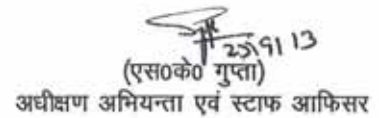 25/9/13
(एस०के० गुप्ता)
अधीक्षण अभियन्ता एवं स्टाफ आफिसर